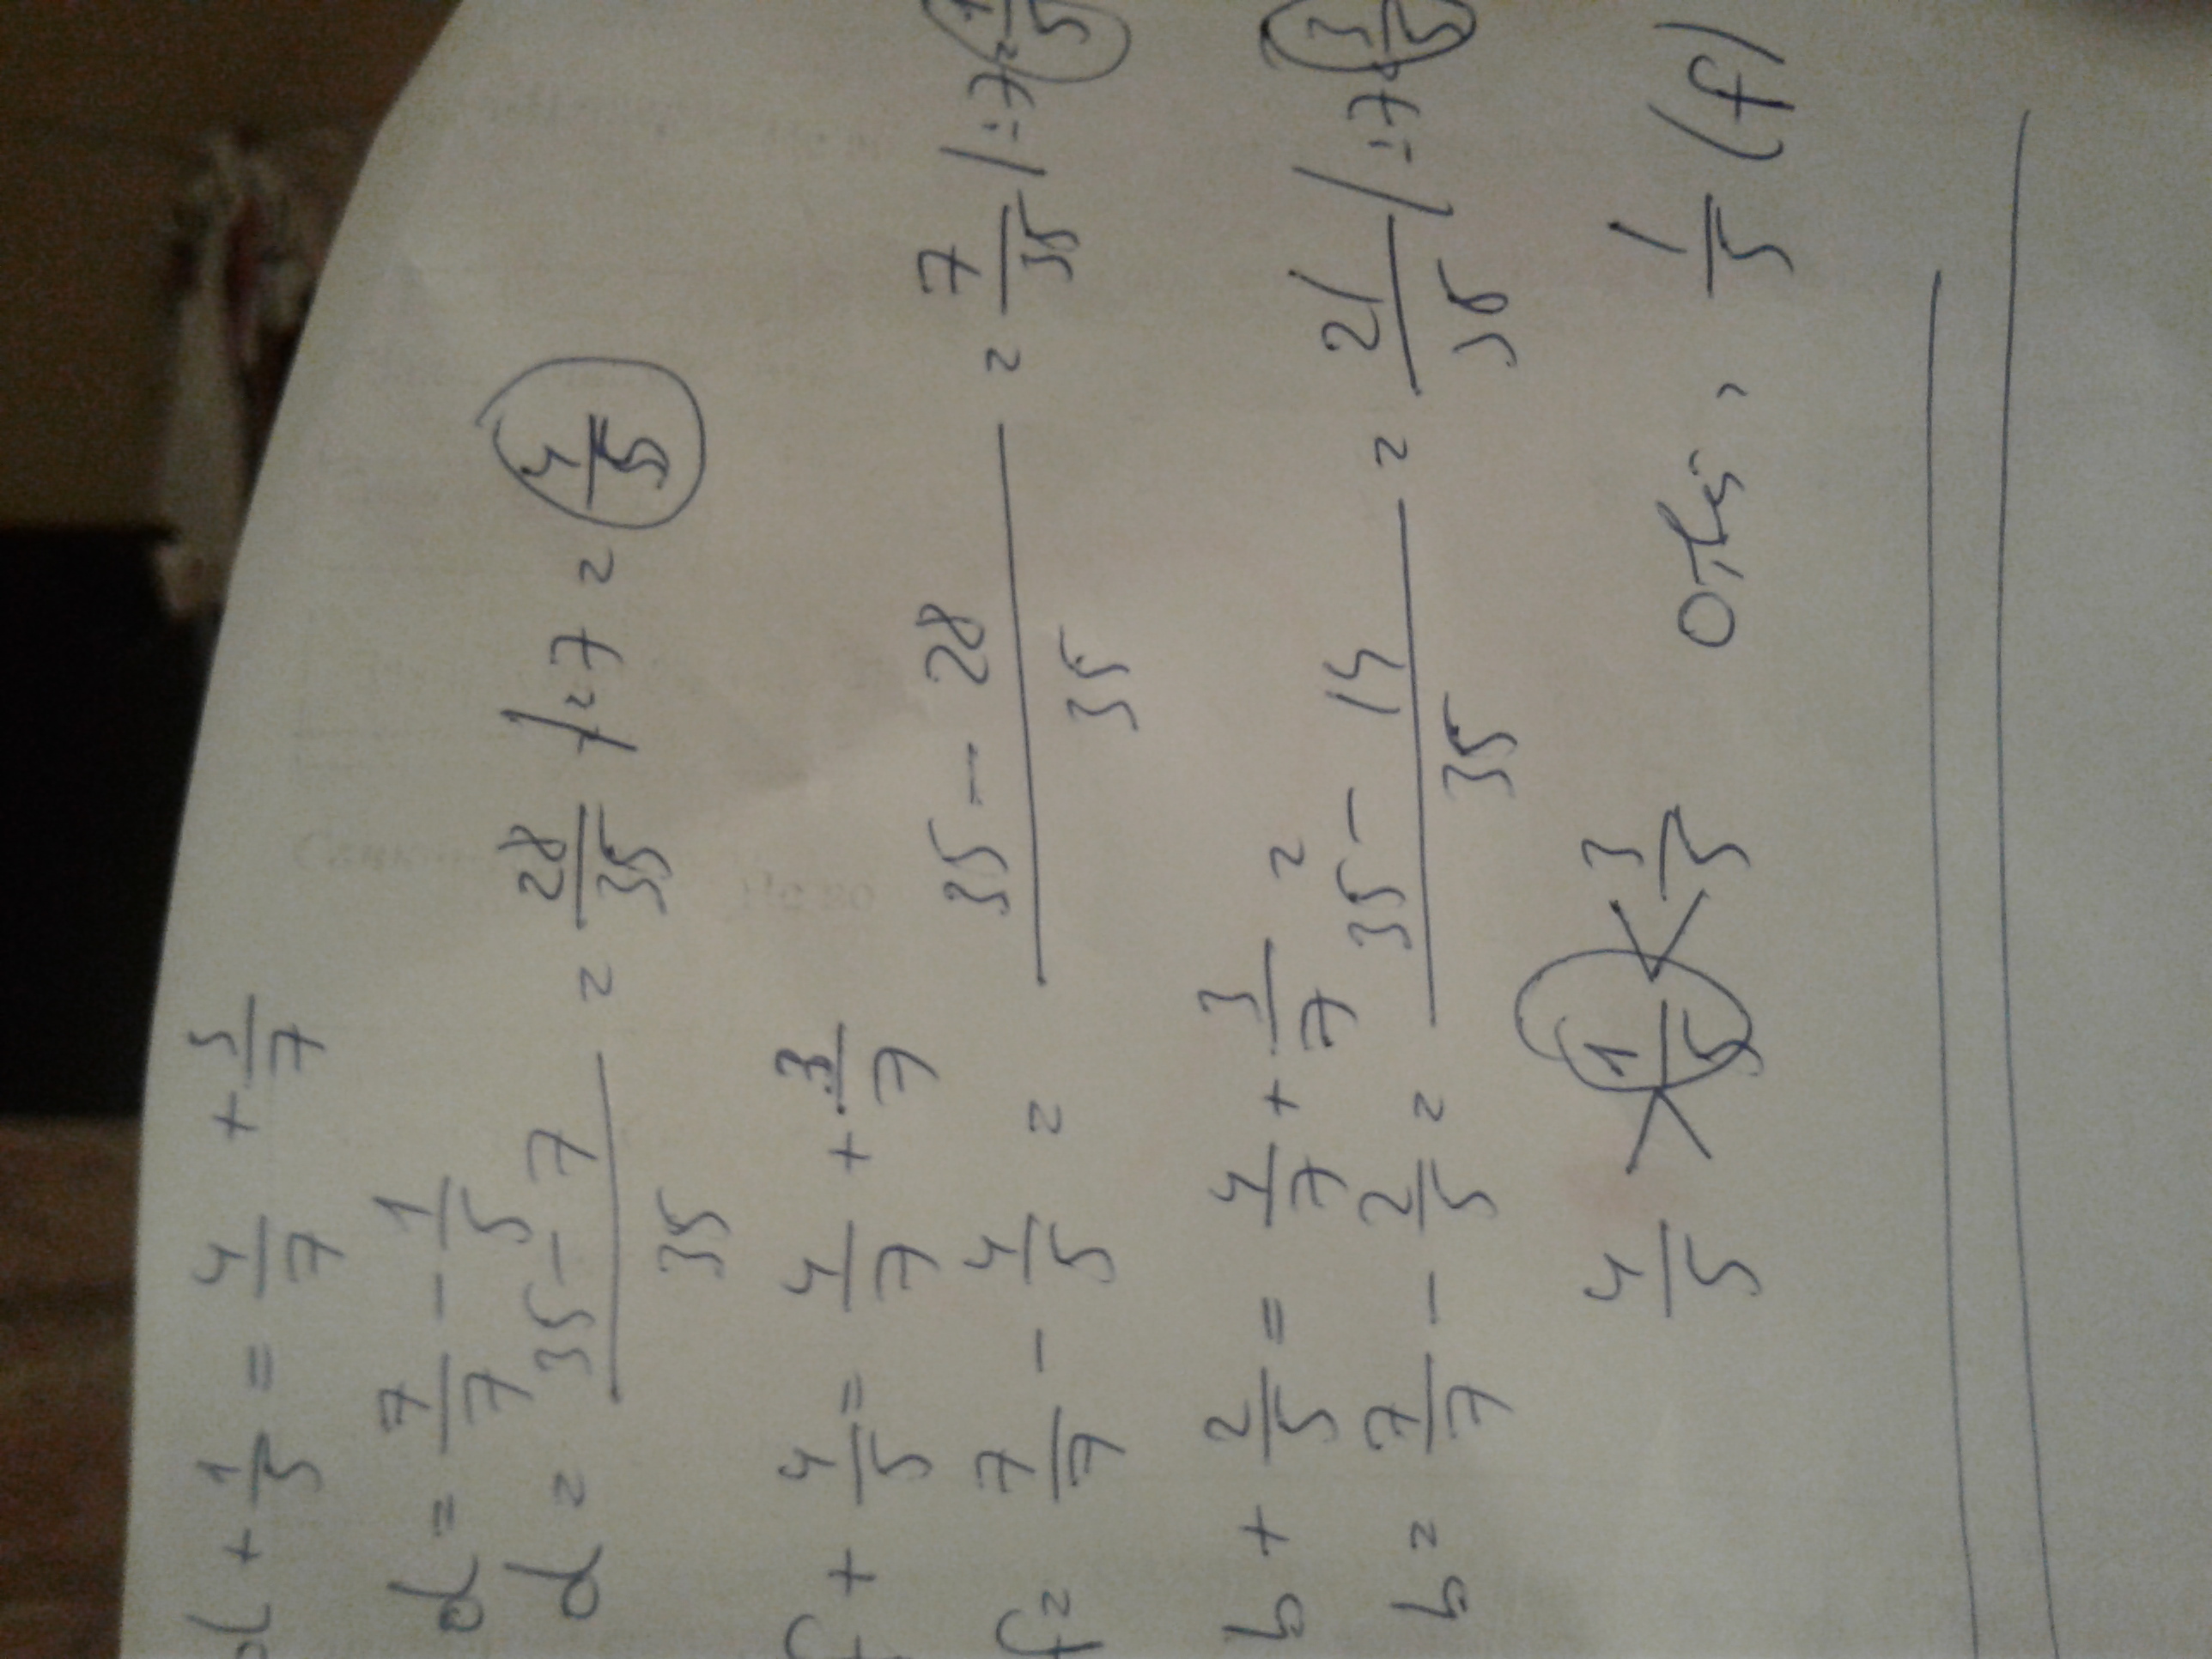 d + 1/5 = 4/7 + 3/7
d = 7/7 - 1/5
d = (35 - 7)/35 = 28/35 /:7 = 4/5
f + 4/5 = 4/7 + 3/7
f = 7/7 - 4/5 = (35 - 28)/35 = 7/35 /:7 = 1/5
b + 2/5 = 4/7 + 3/7 =
b = 7/7 - 2/5 = (35 - 14)/35 = 21/35 /:7 = 3/5
4/5 > 1/5 < 3/5 1/5 (f)